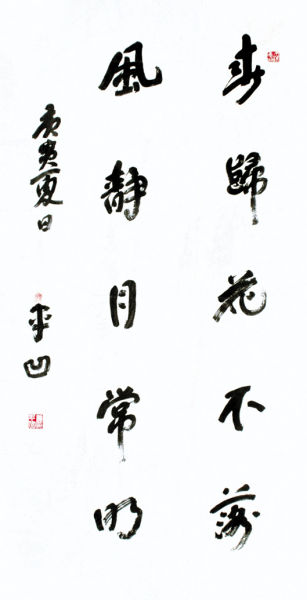 春歸花不落
風靜月常明
庚寅夏日 平凹